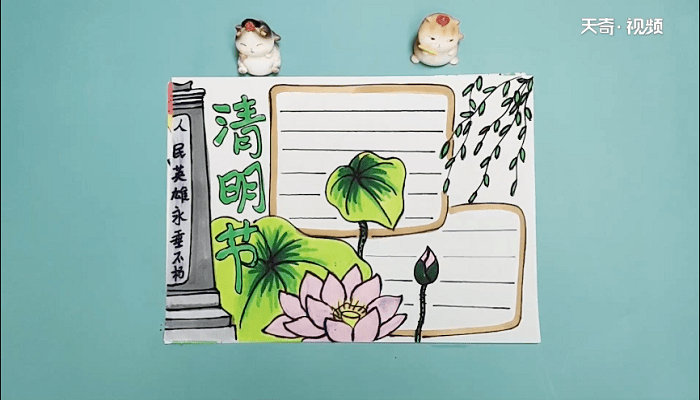 天奇·视频
人民英雄永垂不朽
清明节